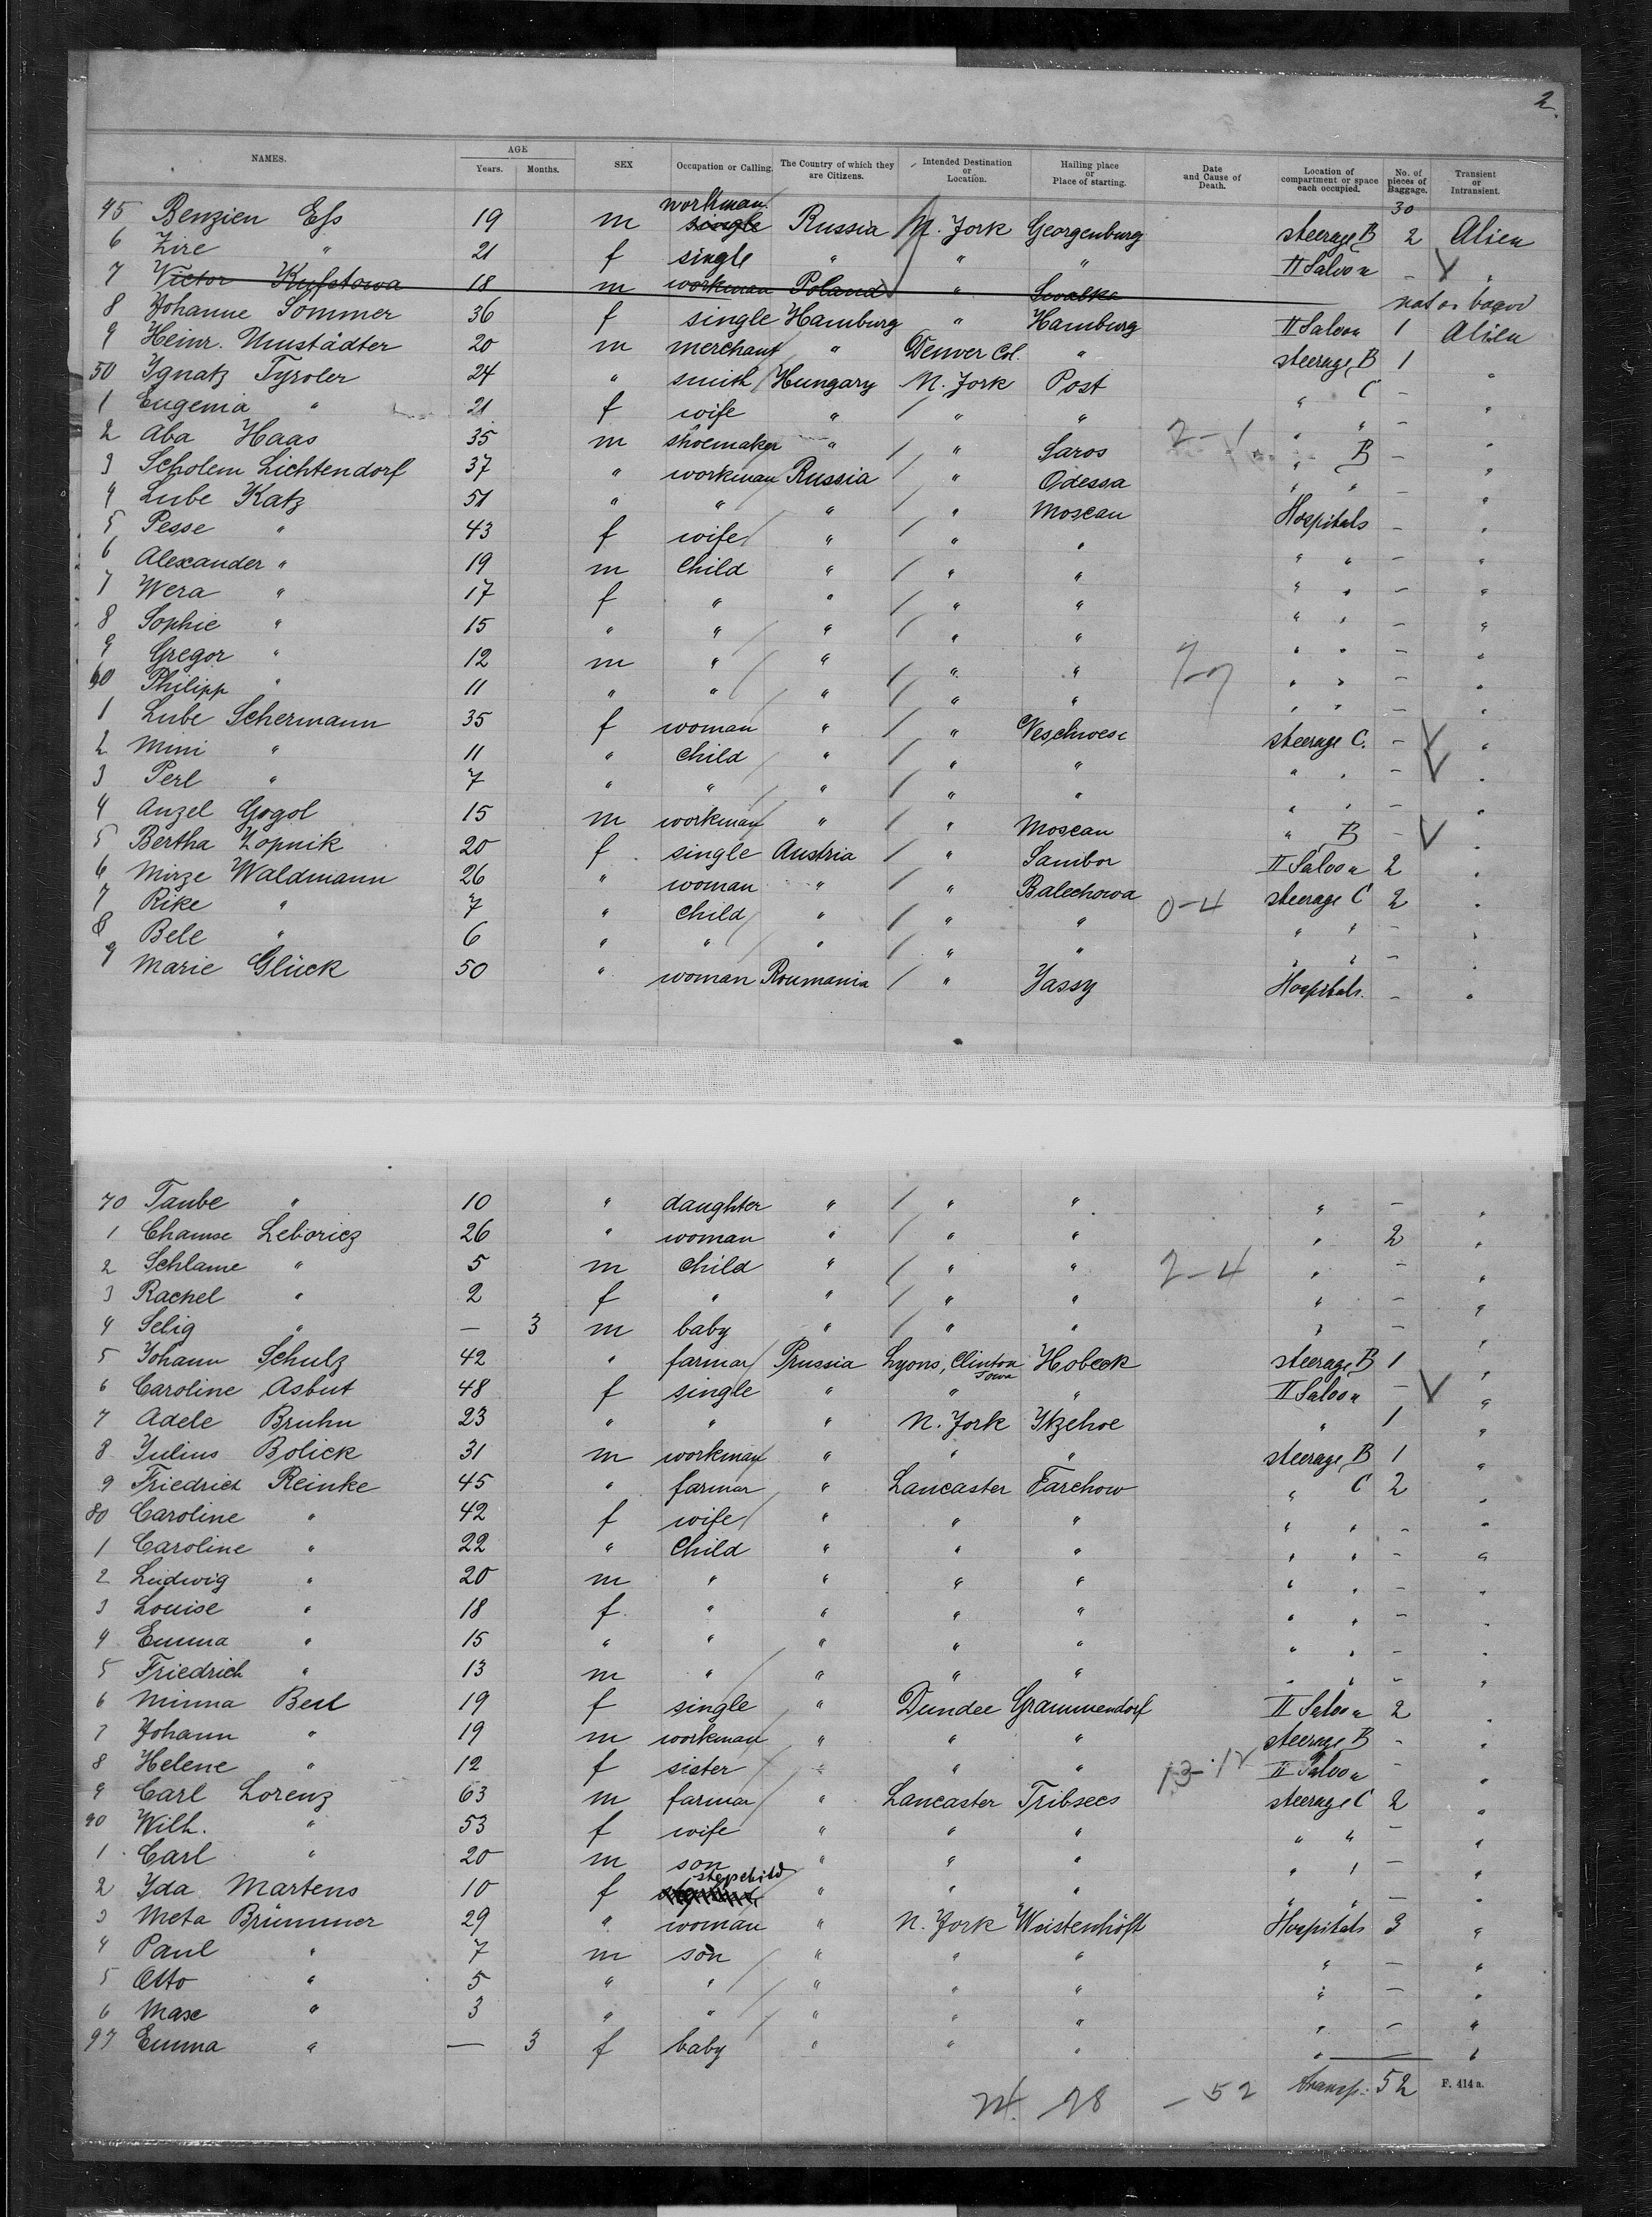 2.
NAMES. AGE Years. Months. SEX Occupation or Calling. The Country of which they are Citizens. Intended Destination or Location. Hailing place or Place of starting. Date and Cause of Death. Location of compartment or space each occupied. No. of pieces of Baggage. Transient or Intransient.
30
45 Benzien Ess 19 m workman single Russia N. York Georgenburg steerage B 2 Alien
6 Zire " 21 f single " " " II Saloon - "
7 Victor Kufstowa 18 m workman Poland " Swalka not on board
8 Johanne Sommer 36 f single Hamburg " Hamburg II Saloon 1 Alien
9 Heinr. Umstädter 20 m merchant " Denver Col. " steerage B 1 "
50 Ignatz Tyroler 24 " smith Hungary N. York Post " C - "
1 Eugenia " 21 f wife " " " " " - "
2 Aba Haas 35 m shoemaker " " Saros 2-1 " B - "
3 Scholem Lichtendorf 37 " workman Russia " Odessa " " - "
4 Lube Katz 51 " " " " Moscau Hospitals - "
5 Pesse " 43 f wife " " " " " - "
6 Alexander " 19 m Child " " " " " - "
7 Wera " 17 f " " " " " " - "
8 Sophie " 15 " " " " " " " - "
9 Gregor " 12 m " " " " " " - "
60 Philipp " 11 " " " " " " " - "
1 Lube Schermann 35 f woman " " Neschwese steerage C. - "
2 Mini " 11 " Child " " " " " - "
3 Perl " 7 " " " " " " " - "
4 Anzel Gogol 15 m workman " " Moscau " B - "
5 Bertha Zopnik 20 f single Austria " Sambor II Saloon 2 "
6 Mirze Waldmann 26 " woman " " Balechowa steerage C 2 "
7 Rike " 7 " Child " " " 0-4 " " - "
8 Bele " 6 " " " " " " " - "
9 Marie Glück 50 " woman Roumania " Jassy Hospitals. - "
70 Taube " 10 " daughter " " " " - "
1 Chamse Leboricz 26 " woman " " " " 2 "
2 Schlame " 5 m Child " " " 2-4 " - "
3 Rachel " 2 f " " " " " - "
4 Selig " — 3 m baby " " " " - "
5 Johann Schulz 42 " farmar Prussia Lyons, Clinton Iowa Hobeck steerage B 1 "
6 Caroline Asbut 48 f single " " " II Saloon - "
7 Adele Bruhn 23 " " " N. York Itzehoe " 1 "
8 Julius Bolick 31 m workman " " " steerage B 1 "
9 Friedrich Reinke 45 " farmar " Lancaster Farchow " C 2 "
80 Caroline " 42 f wife " " " " " - "
1 Caroline " 22 " Child " " " " " - "
2 Ludwig " 20 m " " " " " " - "
3 Louise " 18 f. " " " " " " - "
4 Emma " 15 " " " " " " " - "
5 Friedrich " 13 m " " " " " " - "
6 Minna Beel 19 f single " Dundee Grammendorf II Saloon 2 "
7 Johann " 19 m workman " " " steerage B - "
8 Helene " 12 f sister " " " 13-12 II Saloon - "
9 Carl Lorenz 63 m farmar " Lancaster Tribsees steerage C 2 "
90 Wilh. " 53 f wife " " " " " - "
1 Carl " 20 m son " " " " " - "
2 Ida Martens 10 f stepchild " " " " " - "
3 Meta Brümmer 29 " woman " N. York Weistenhöft Hospitals 3 "
4 Paul " 7 m son " " " " - "
5 Otto " 5 " " " " " " - "
6 Max " 3 " " " " " " - "
97 Emma " — 3 f baby " " " " — "
24. 28 - 52 transp: 52 F. 414 a.